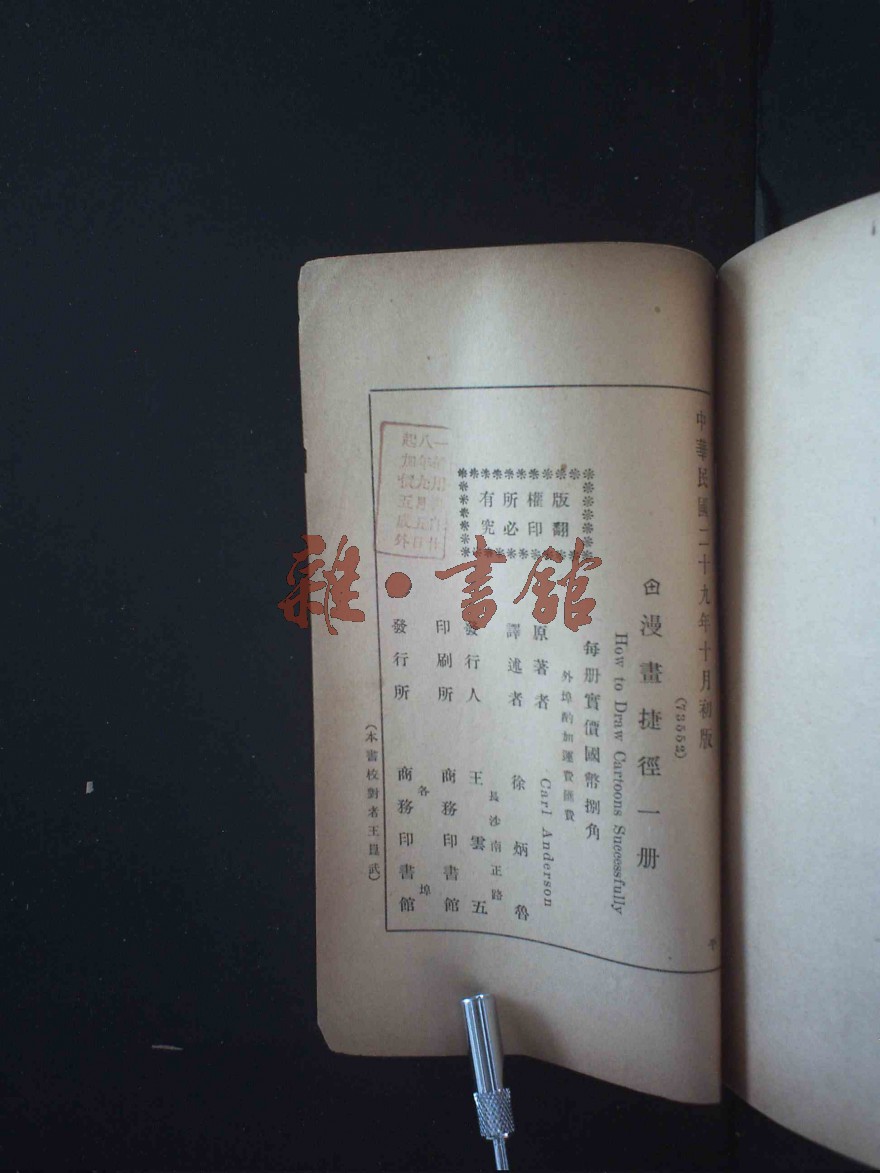 中華民國二十九年十月初版
(73552)
漫畫捷徑一册
How to Draw Cartoons Successfully
每册實價國幣捌角
外埠酌加運費匯費
版權所有
翻印必究
原著者 Carl Anderson
譯述者 徐炳魯
長沙南正路
發行人 王雲五
印刷所 商務印書館
各埠
發行所 商務印書館
(本書校對者王
武)
雜·書館